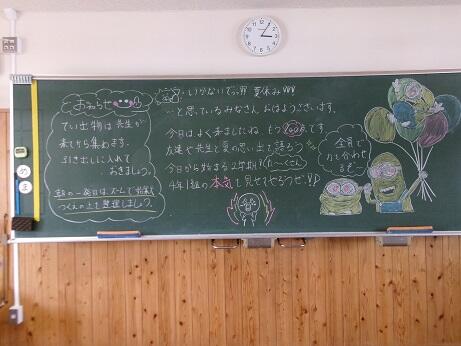 おしらせ
てい出物は先生が
来てから集めます。
引き出しに入れて
おきましょう。
つくえの上を整理しましょう。
いかないでっ!!! 夏休みWWW
…と思っているみなさん、おはようございます。
今日はよく来ましたね。もう100点です。
友達や先生と夏の思い出を語ろう
今日から始まる2学期!
本気を見せてやろうぜ!!
全員で
力を合わせ
るぞ〜